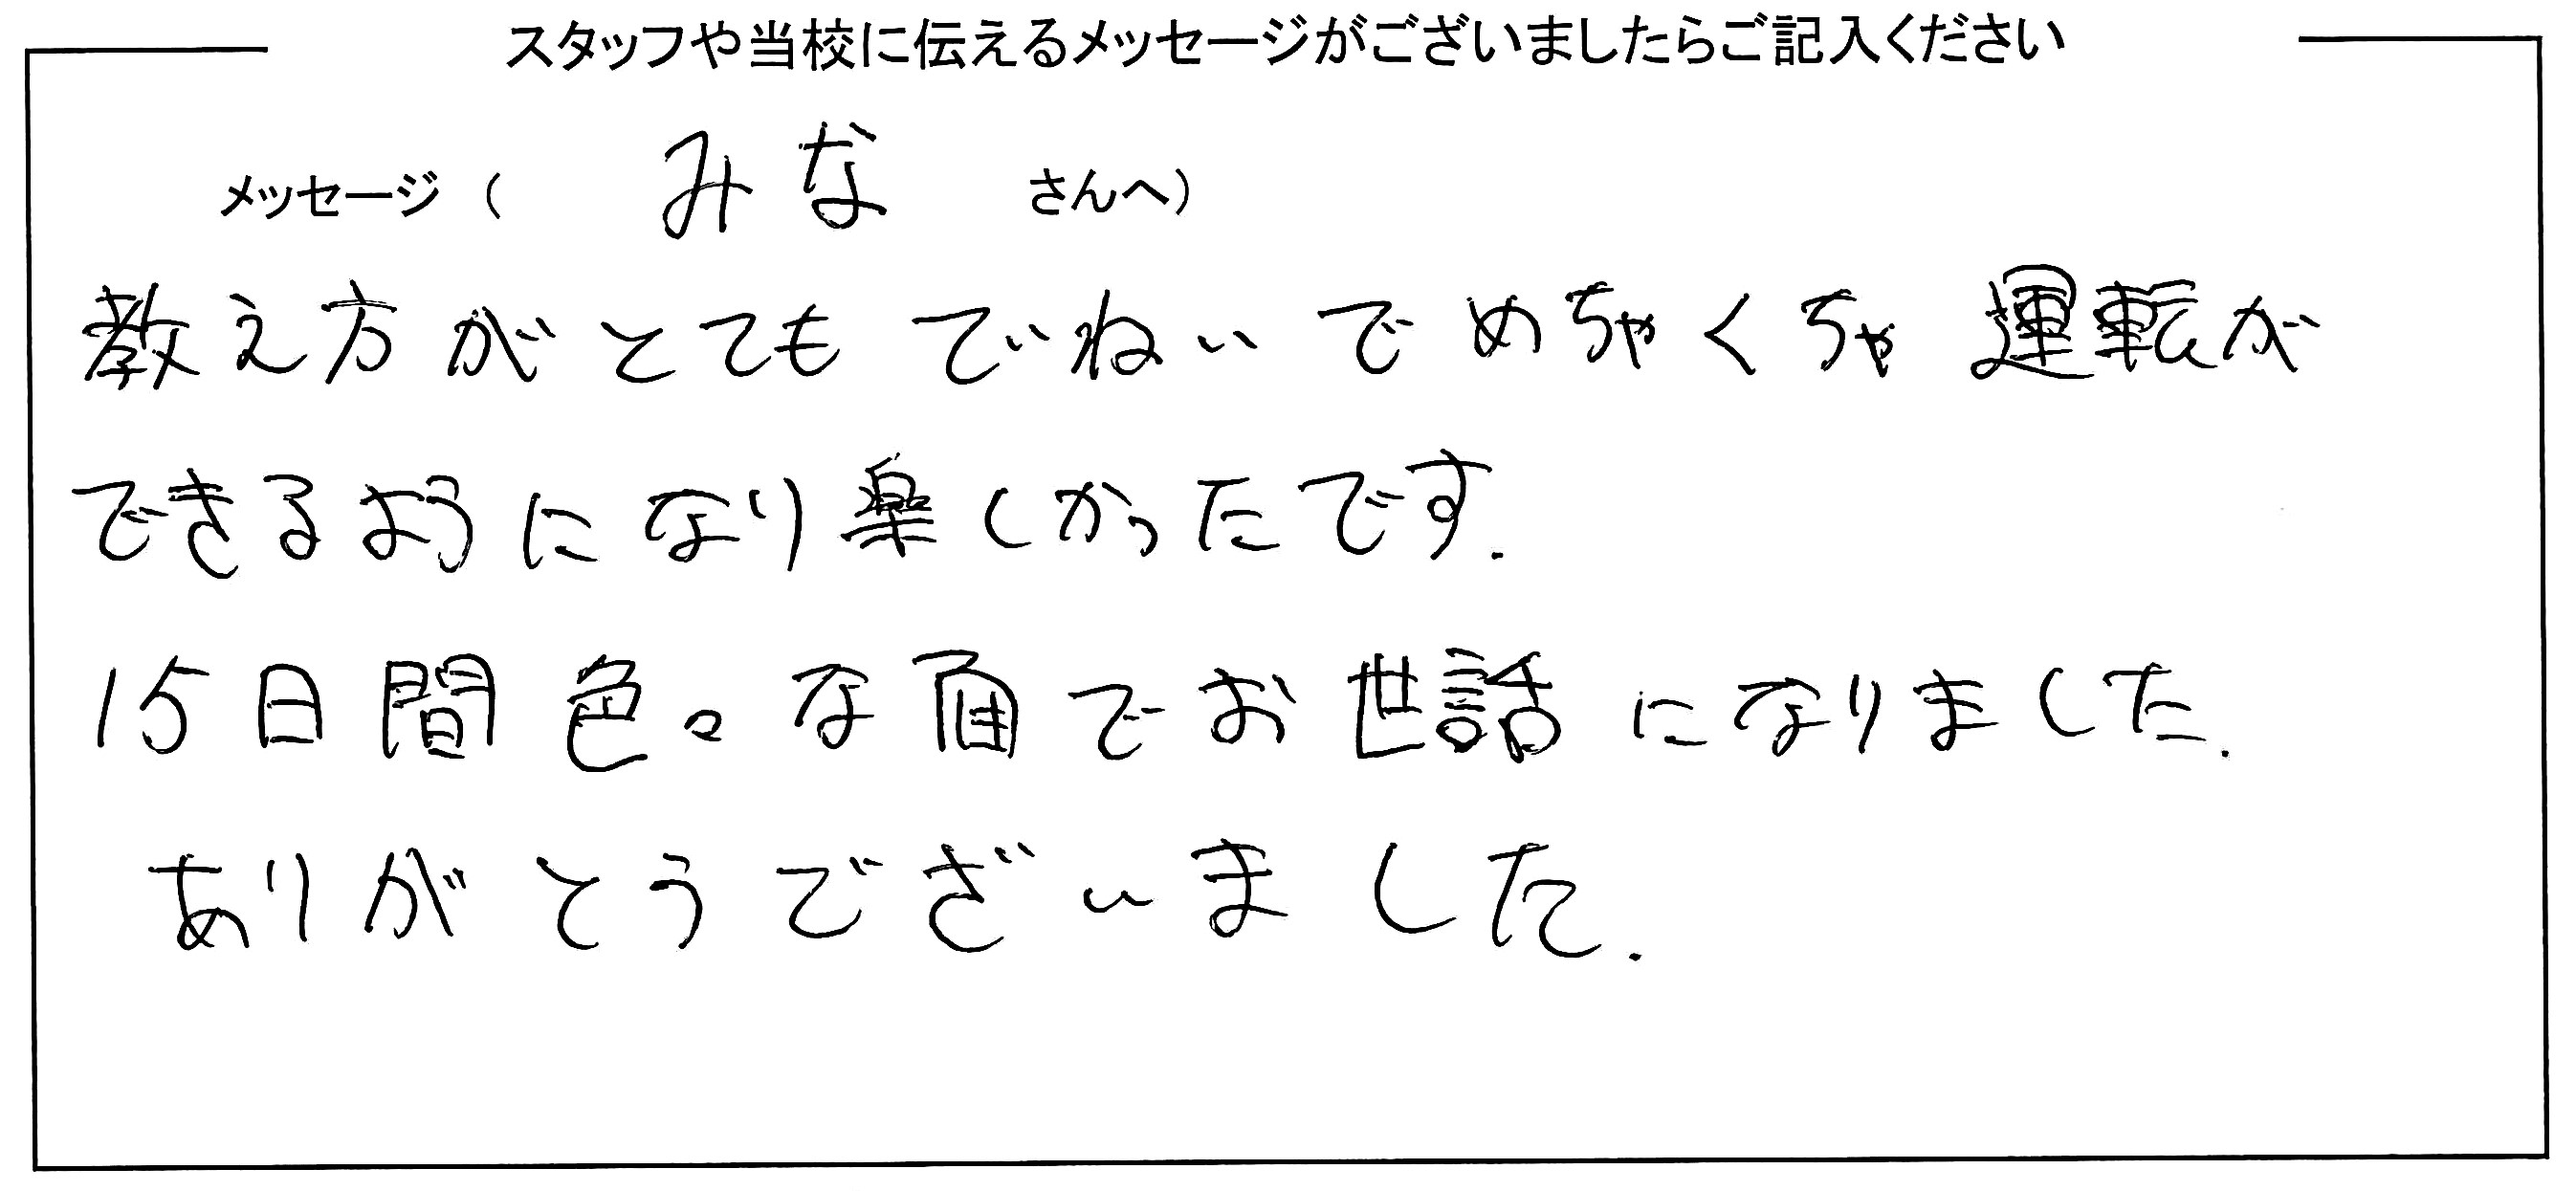 スタッフや当校に伝えるメッセージがございましたらご記入ください
メッセージ（ みな さんへ）
教え方がとてもでいねいでめちゃくちゃ運転が
できるようになり楽しかったです.
15日間色々な面でお世話になりました.
ありがとうございました.